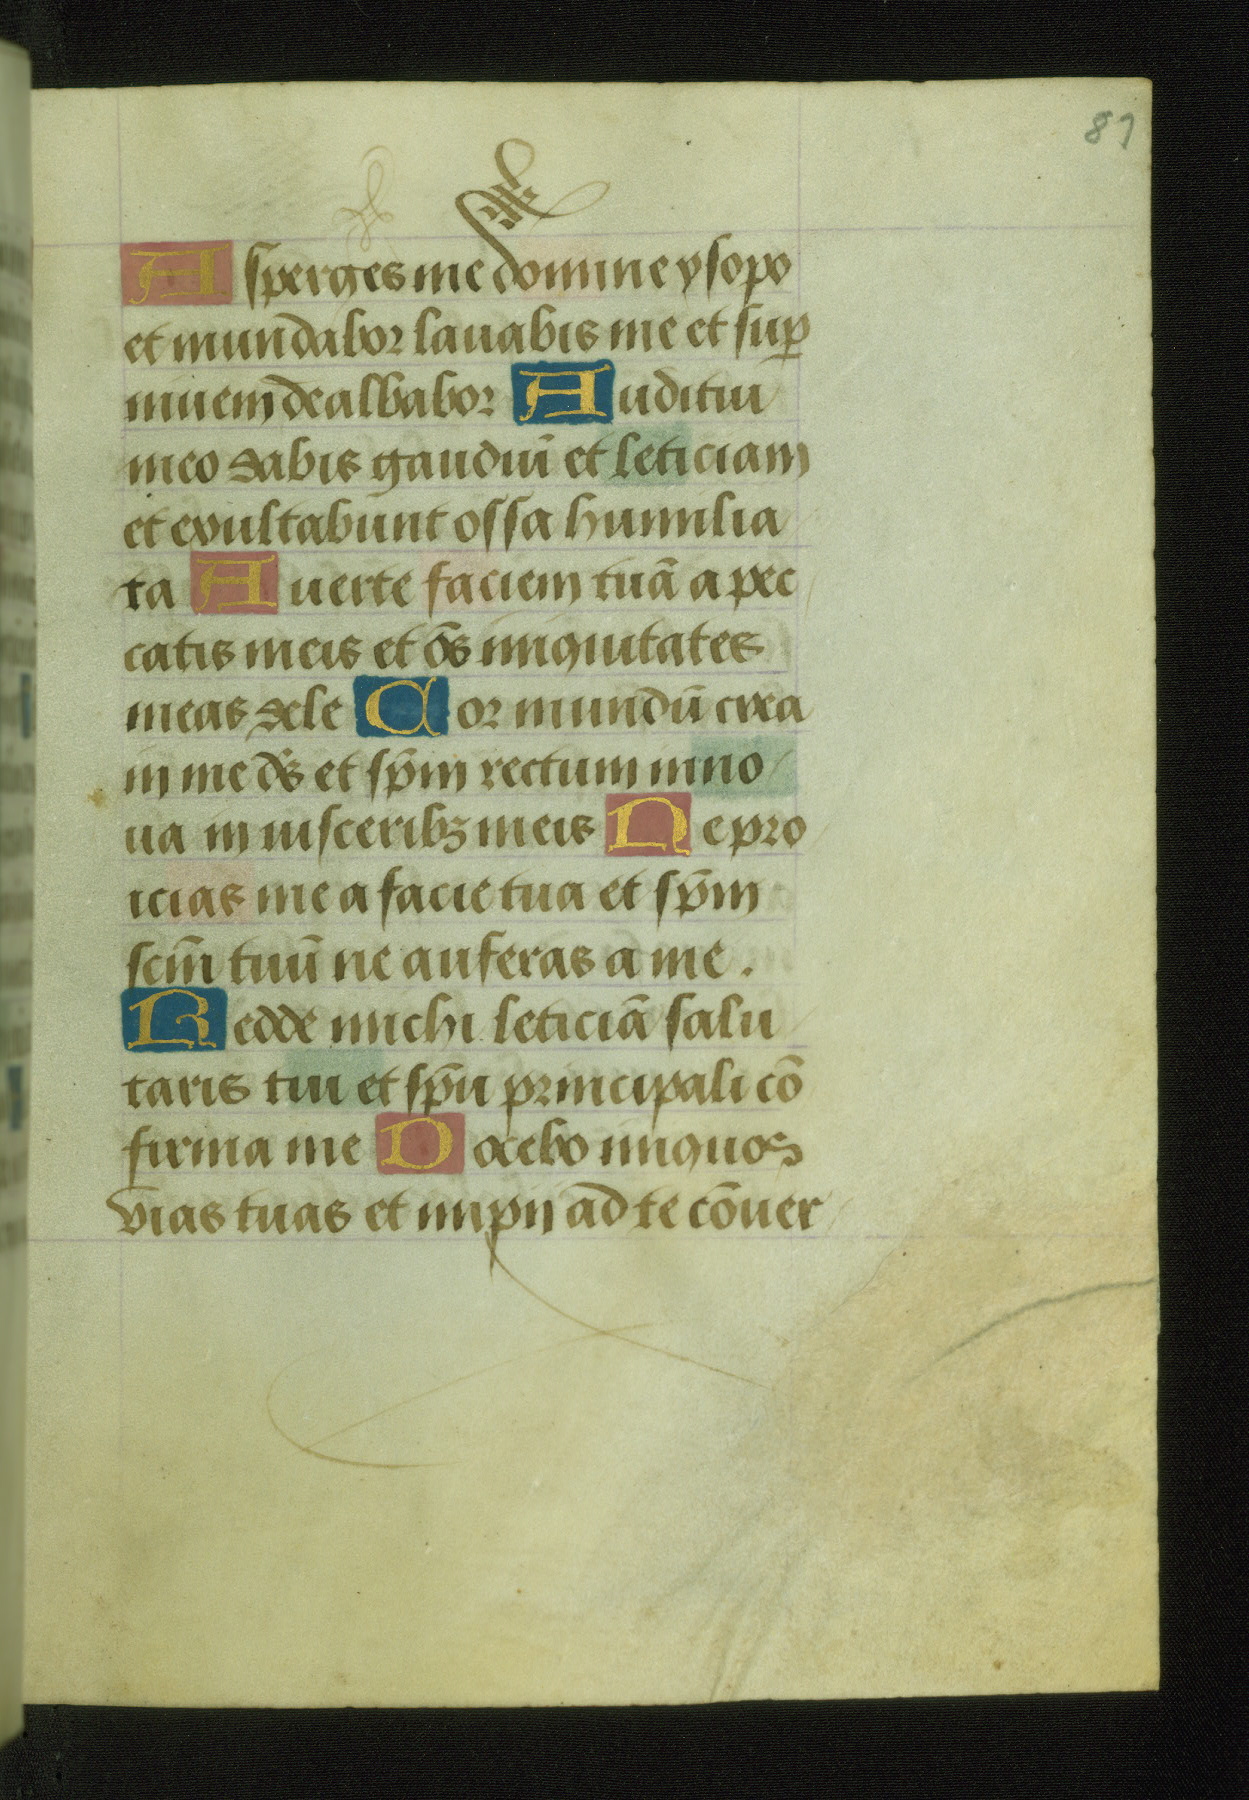 87
Asperges me domine ysopo
et mundabor lauabis me et sup̄
niuem dealbabor Auditui
meo dabis gaudiū et leticiam
et exultabunt ossa humilia
ta Auerte faciem tuā a pec
catis meis et ōs iniquitates
meas dele Cor mundū crea
in me ds̄ et sp̄m rectum inno
ua in uisceribꝫ meis Ne pro
icias me a facie tua et sp̄m
scm̄ tuū ne auferas a me.
Redde michi leticiā salu
taris tui et sp̄u principali cō
firma me Docebo iniquos
vias tuas et impii ad te cōuer